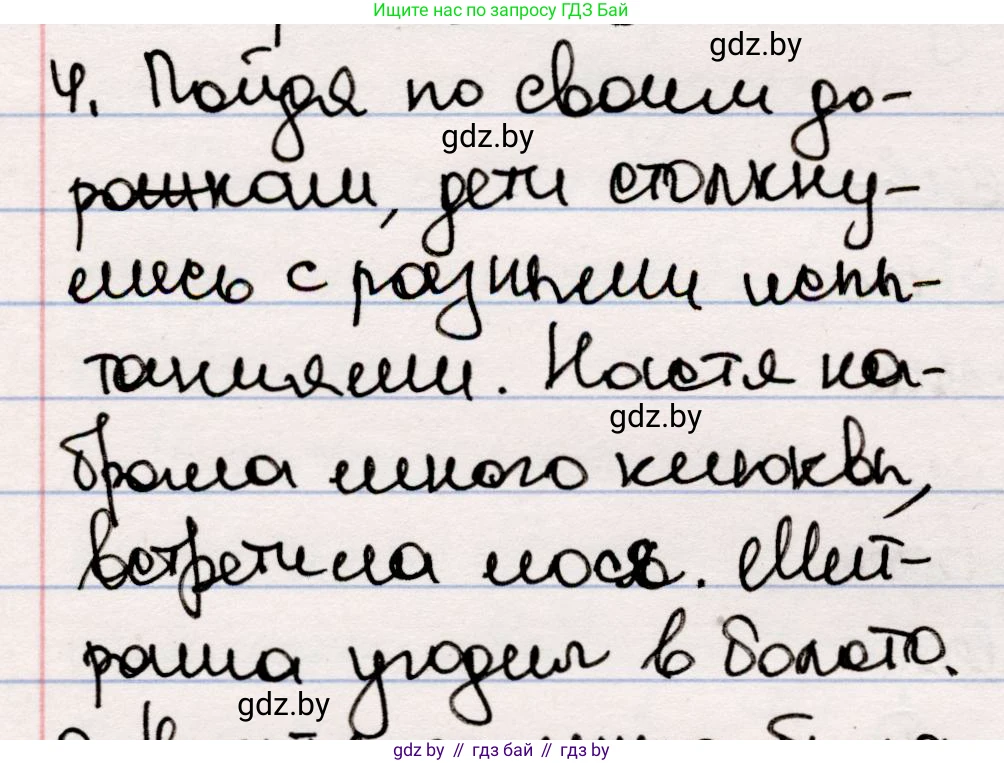 Ищите нас по запросу ГДЗ Бай
gdz.by
4. Пойдя по своим до-
gdz.by
рожкам, дети столкну-
лись с разными испы-
таниями. Настя на-
gdz.by
брала много клюквы,
встретила лося. Мит-
раша угодил в болото.
gdz.by
gdz.by // гдз бай // гдз by